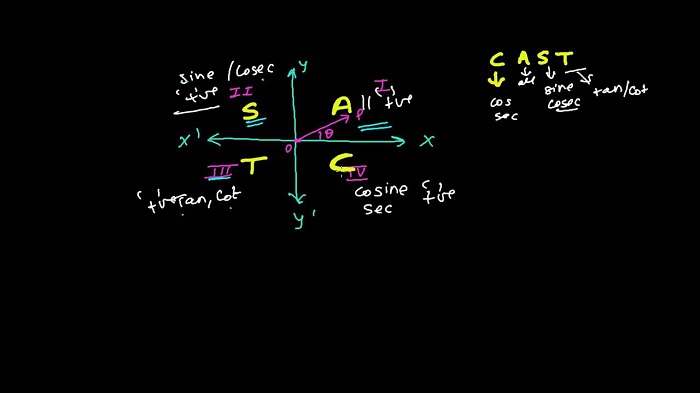 y
C A S T
sine / cosec
'+ve' II
I
S
A
All '+ve'
P
all
sine
cosec
tan/cot
cos
sec
θ
x'
O
x
III
T
C
IV
'+ve' Tan, Cot
cosine '+ve'
sec
y'